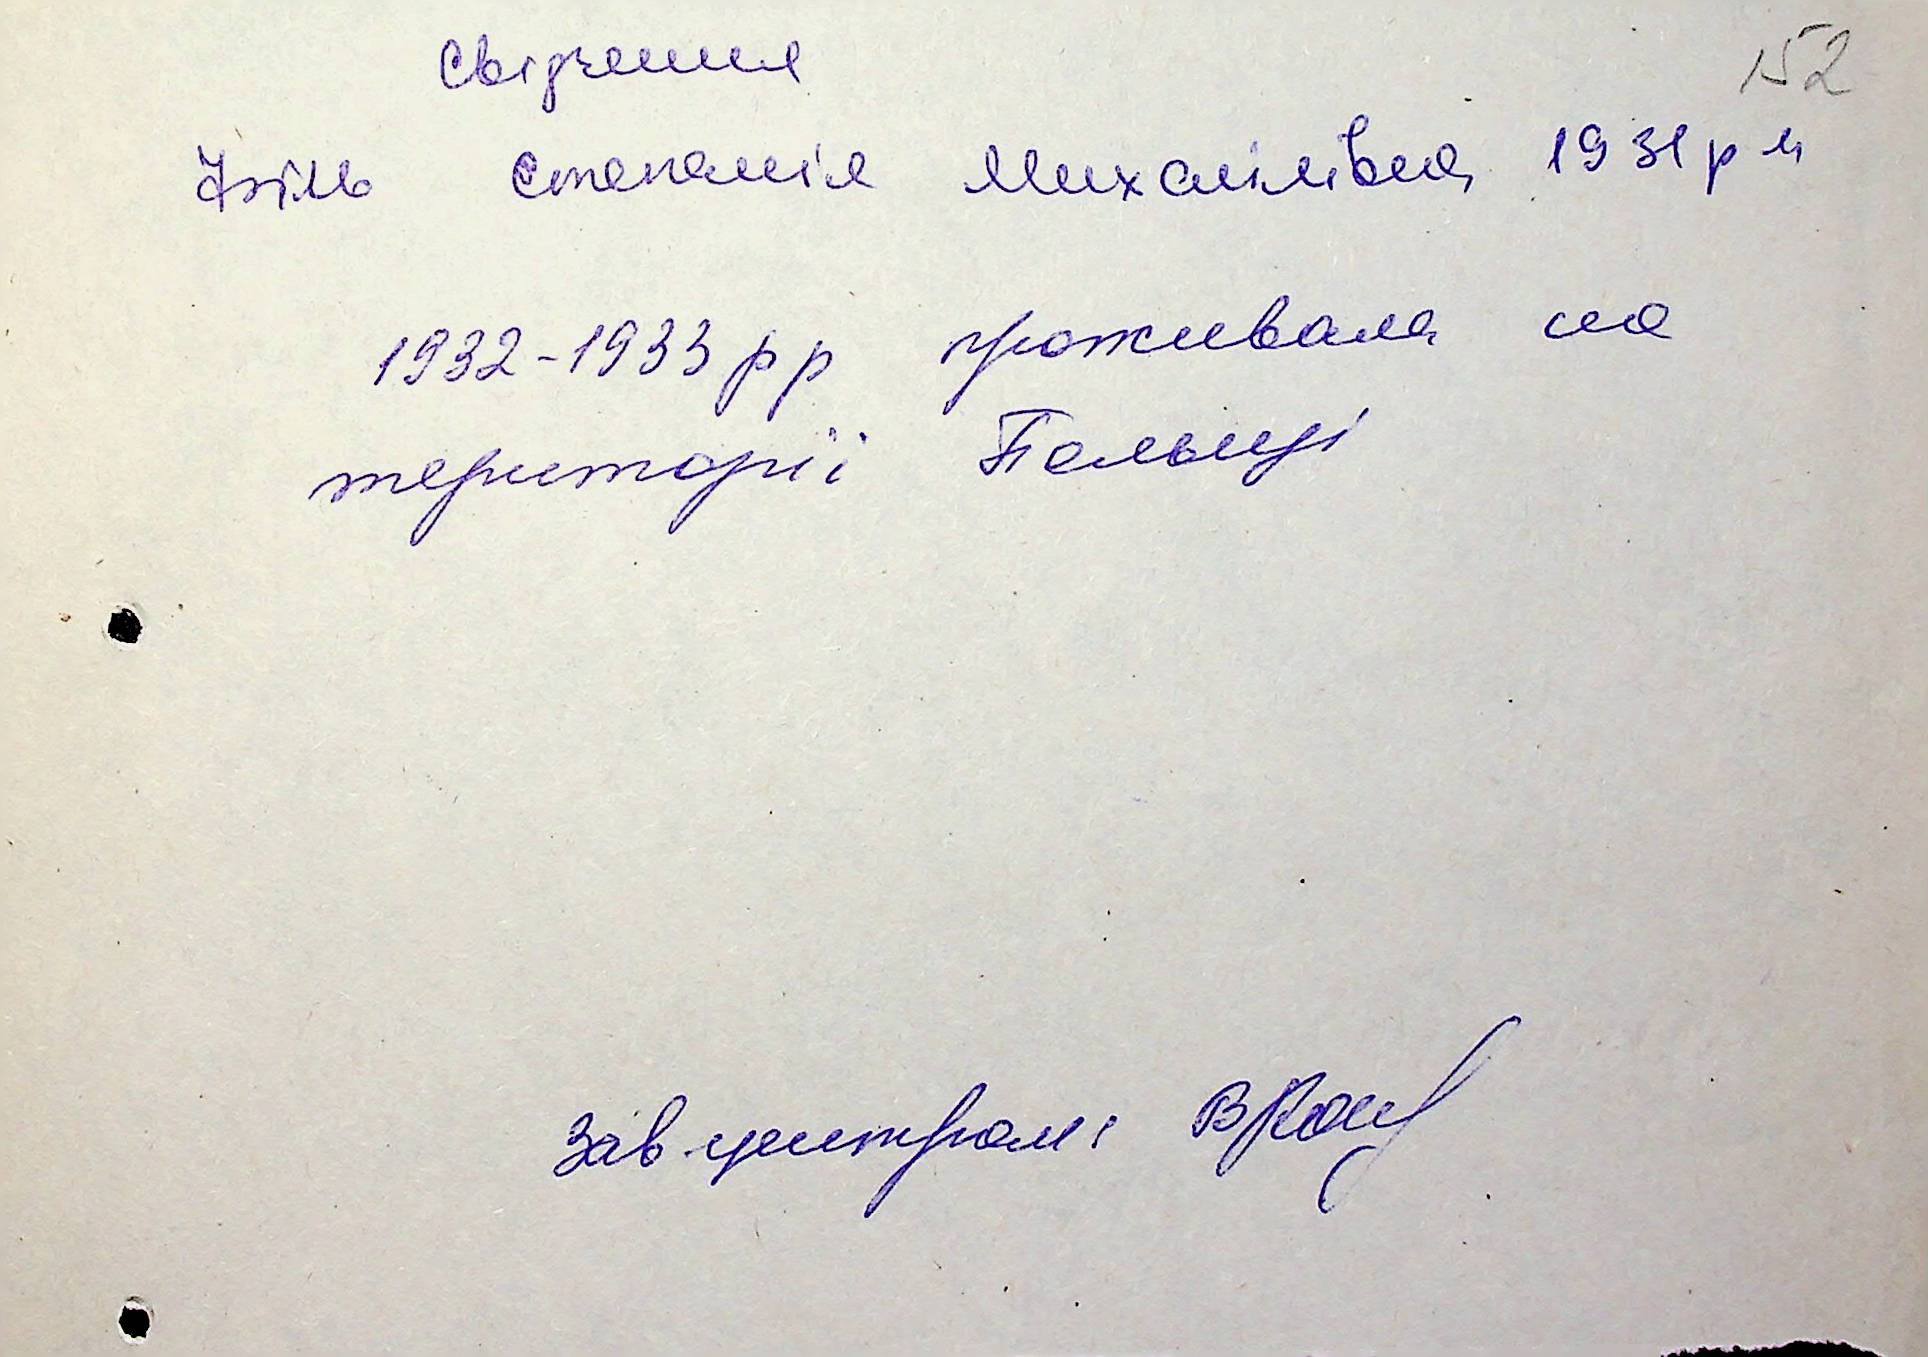 152
Свідчення
Степанія Михайлівна 1931 р н
1932-1933 рр проживала на
території Польщі
Зав центром: